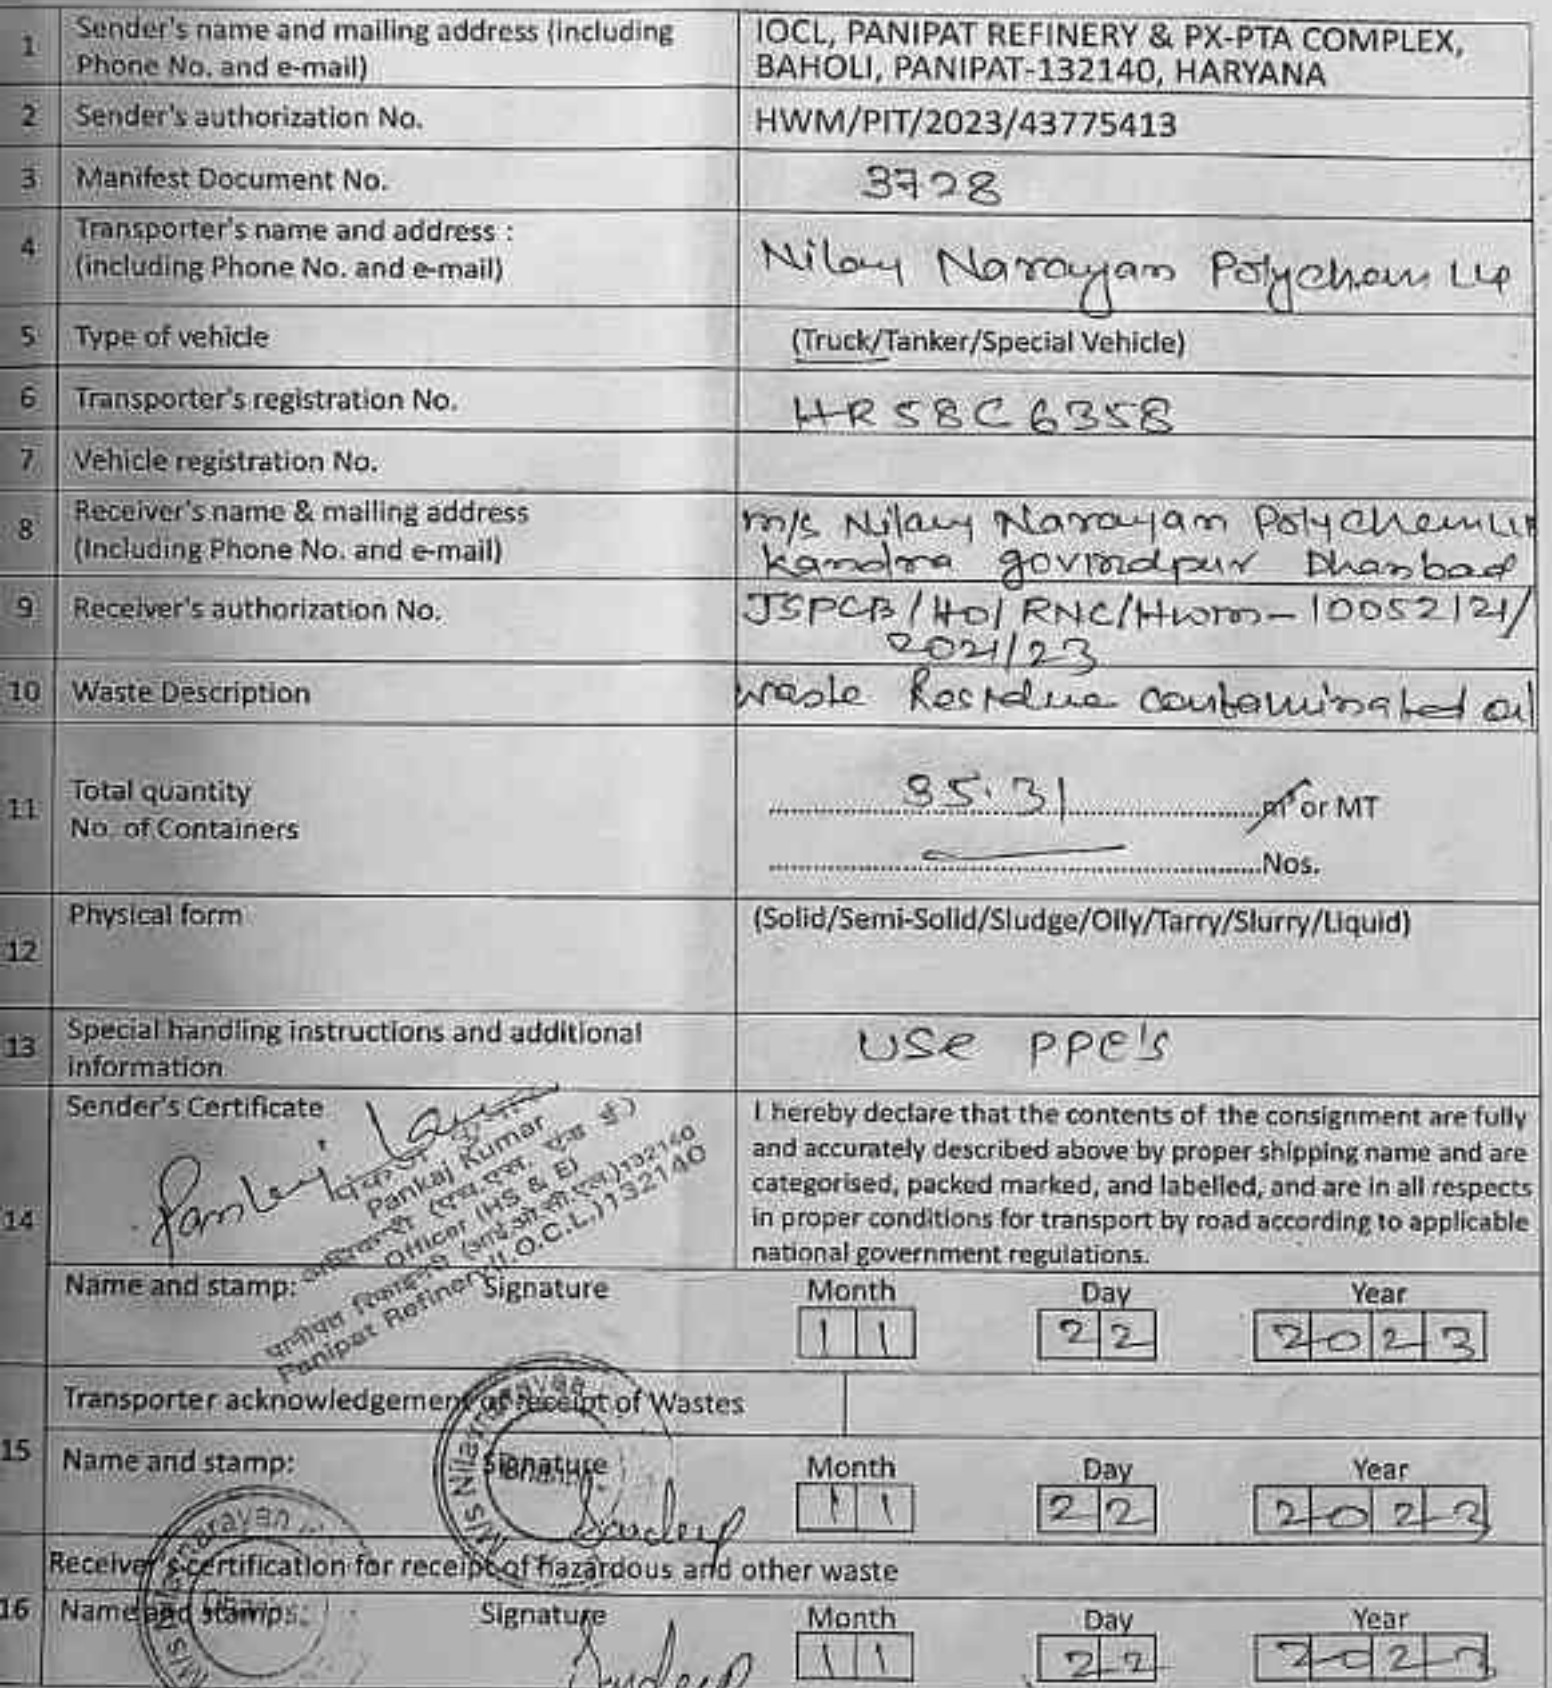 1 Sender's name and mailing address (including
Phone No. and e-mail)
IOCL, PANIPAT REFINERY & PX-PTA COMPLEX,
BAHOLI, PANIPAT-132140, HARYANA
2 Sender's authorization No. HWM/PIT/2023/43775413
3 Manifest Document No. 3728
4 Transporter's name and address :
(including Phone No. and e-mail)
Nilay Narayan Polychem LLP
5 Type of vehicle (Truck/Tanker/Special Vehicle)
6 Transporter's registration No. HR58C6358
7 Vehicle registration No.
8 Receiver's name & mailing address
(Including Phone No. and e-mail)
M/s Nilay Narayan Polychem LLP
Kandra govindpur Dhanbad
9 Receiver's authorization No. JSPCB/HO/RNC/HWM-10052121/
2021/23
10 Waste Description Waste Residue contaminated oil
11 Total quantity
No. of Containers
35.31 m³ or MT
Nos.
12 Physical form (Solid/Semi-Solid/Sludge/Oily/Tarry/Slurry/Liquid)
13 Special handling instructions and additional
information
USE PPE's
14 Sender's Certificate
I hereby declare that the contents of the consignment are fully
and accurately described above by proper shipping name and are
categorised, packed marked, and labelled, and are in all respects
in proper conditions for transport by road according to applicable
national government regulations.
Pankaj Kumar
पंकज कुमार
Pankaj Kumar
अधिकारी (एच.एस. एंड ई)
Officer (HS & E)
पानीपत रिफाइनरी (आई.ओ.सी.एल.)132140
Panipat Refinery(I.O.C.L.)132140
Name and stamp: Signature Month Day Year
11 22 2023
15 Transporter acknowledgement of receipt of Wastes
Name and stamp: Signature Month Day Year
Sandeep 11 22 2023
Receiver's certification for receipt of hazardous and other waste
16 Name and stamps: Signature Month Day Year
Sandeep 11 22 2023